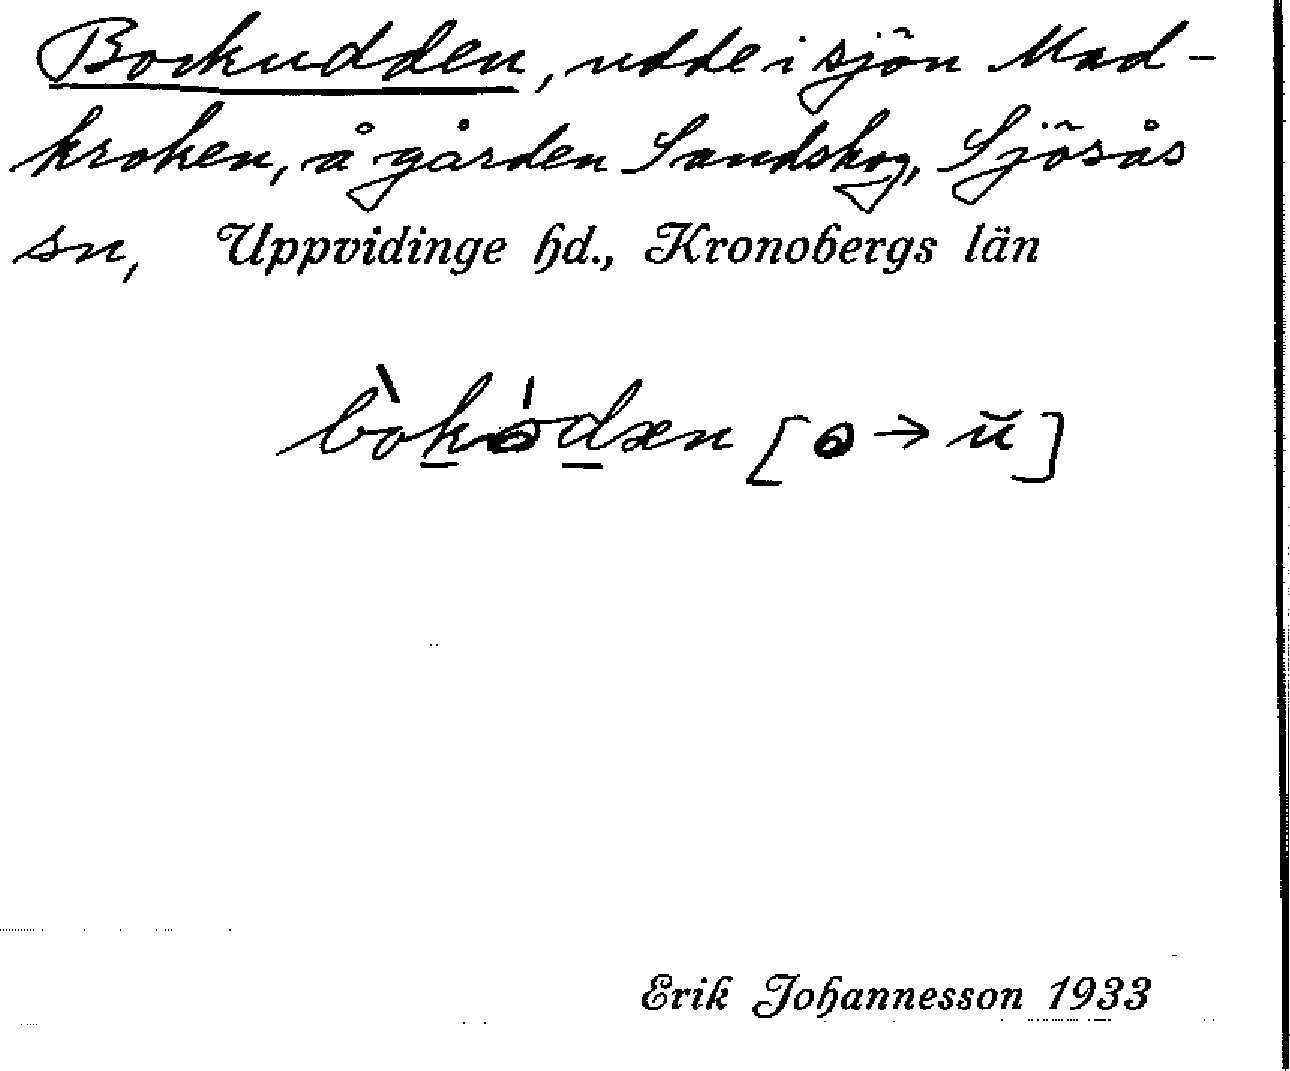 Bockudden, udde i sjön Mad-
kroken, å gården Sandskog, Sjösås
sn, Uppvidinge hd., Kronobergs län
bòkɷ́dæn [ɷ → ŭ]
Erik Johannesson 1933